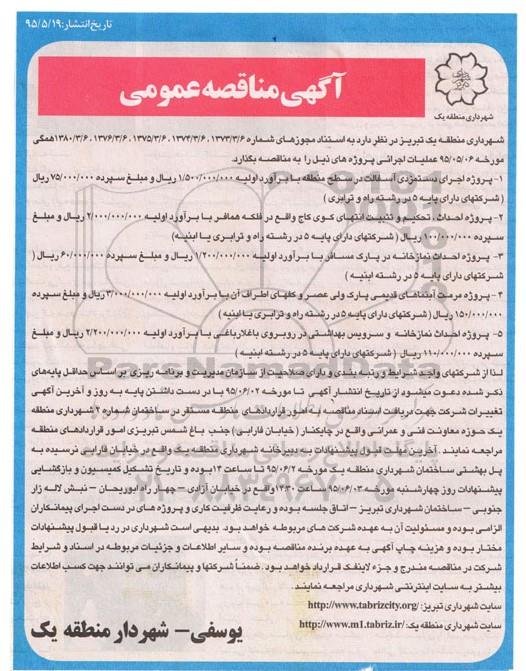 تاریخ انتشار: ۹۵/۵/۱۹
شهرداری منطقه یک
آگهی مناقصه عمومی
شهرداری منطقه یک تبریز در نظر دارد به استناد مجوزهای شماره ۱۳۷۳/۳/۶ ، ۱۳۷۴/۳/۶ ، ۱۳۷۵/۳/۶ ، ۱۳۷۶/۳/۶ ، ۱۳۸۰/۳/۶ همگی
مورخه ۹۵/۰۵/۰۶ عملیات اجرائی پروژه های ذیل را به مناقصه بگذارد.
۱- پروژه اجرای دستمزدی آسفالت در سطح منطقه با برآورد اولیه ۱/۵۰۰/۰۰۰/۰۰۰ ریال و مبلغ سپرده ۷۵/۰۰۰/۰۰۰ ریال
( شرکتهای دارای پایه ۵ در رشته راه و ترابری )
۲- پروژه احداث ، تحکیم و تثبیت انتهای کوی کاج واقع در فلکه همافر با برآورد اولیه ۲/۰۰۰/۰۰۰/۰۰۰ ریال و مبلغ
سپرده ۱۰۰/۰۰۰/۰۰۰ ریال ( شرکتهای دارای پایه ۵ در رشته راه و ترابری یا ابنیه )
۳- پروژه احداث نمازخانه در پارک مسافر با برآورد اولیه ۱/۲۰۰/۰۰۰/۰۰۰ ریال و مبلغ سپرده ۶۰/۰۰۰/۰۰۰ ریال (
شرکتهای دارای پایه ۵ در رشته ابنیه )
۴- پروژه مرمت آبنماهای قدیمی پارک ولی عصر و کفهای اطراف آن با برآورد اولیه ۳/۰۰۰/۰۰۰/۰۰۰ ریال و مبلغ سپرده
۱۵۰/۰۰۰/۰۰۰ ریال ( شرکتهای دارای پایه ۵ در رشته راه و ترابری یا ابنیه )
۵- پروژه احداث نمازخانه و سرویس بهداشتی در روبروی باغلارباغی با برآورد اولیه ۲/۲۰۰/۰۰۰/۰۰۰ ریال و مبلغ
سپرده ۱۱۰/۰۰۰/۰۰۰ ریال ( شرکتهای دارای پایه ۵ در رشته ابنیه )
لذا از شرکتهای واجد شرایط و رتبه بندی و دارای صلاحیت از سازمان مدیریت و برنامه ریزی بر اساس حداقل پایه‌های
ذکر شده دعوت میشود از تاریخ انتشار آگهی تا مورخه ۹۵/۰۶/۰۲ با در دست داشتن پایه به روز و آخرین آگهی
تغییرات شرکت جهت دریافت اسناد مناقصه به امور قراردادهای منطقه مستقر در ساختمان شماره ۲ شهرداری منطقه
یک حوزه معاونت فنی و عمرانی واقع در چایکنار ( خیابان فارابی ) جنب باغ شمس تبریزی امور قراردادهای منطقه
مراجعه نمایند . آخرین مهلت قبول پیشنهادات به دبیرخانه شهرداری منطقه یک واقع در خیابان فارابی نرسیده به
پل بهشتی ساختمان شهرداری منطقه یک مورخه ۹۵/۰۶/۲ تا ساعت ۱۴ بوده و تاریخ تشکیل کمیسیون و بازگشایی
پیشنهادات روز چهارشنبه مورخه ۹۵/۰۶/۰۳ ساعت ۱۴:۳۰ واقع در خیابان آزادی – چهار راه ابوریحان – نبش لاله زار
جنوبی – ساختمان شهرداری تبریز – اتاق جلسه بوده و رعایت ظرفیت کاری و پروژه های در دست اجرای پیمانکاران
الزامی بوده و مسئولیت آن به عهده شرکت های مربوطه خواهد بود. بدیهی است شهرداری در رد یا قبول پیشنهادات
مختار بوده و هزینه چاپ آگهی به عهده برنده مناقصه بوده و سایر اطلاعات و جزئیات مربوطه در اسناد و شرایط
شرکت در مناقصه مندرج و جزء لاینفک قرارداد خواهد بود . ضمناً شرکتها و پیمانکاران می توانند جهت کسب اطلاعات
بیشتر به سایت اینترنتی شهرداری مراجعه نمایند.
سایت شهرداری تبریز: http://www.tabrizcity.org/
سایت شهرداری منطقه یک: http://www.m1.tabriz.ir/
یوسفی – شهردار منطقه یک